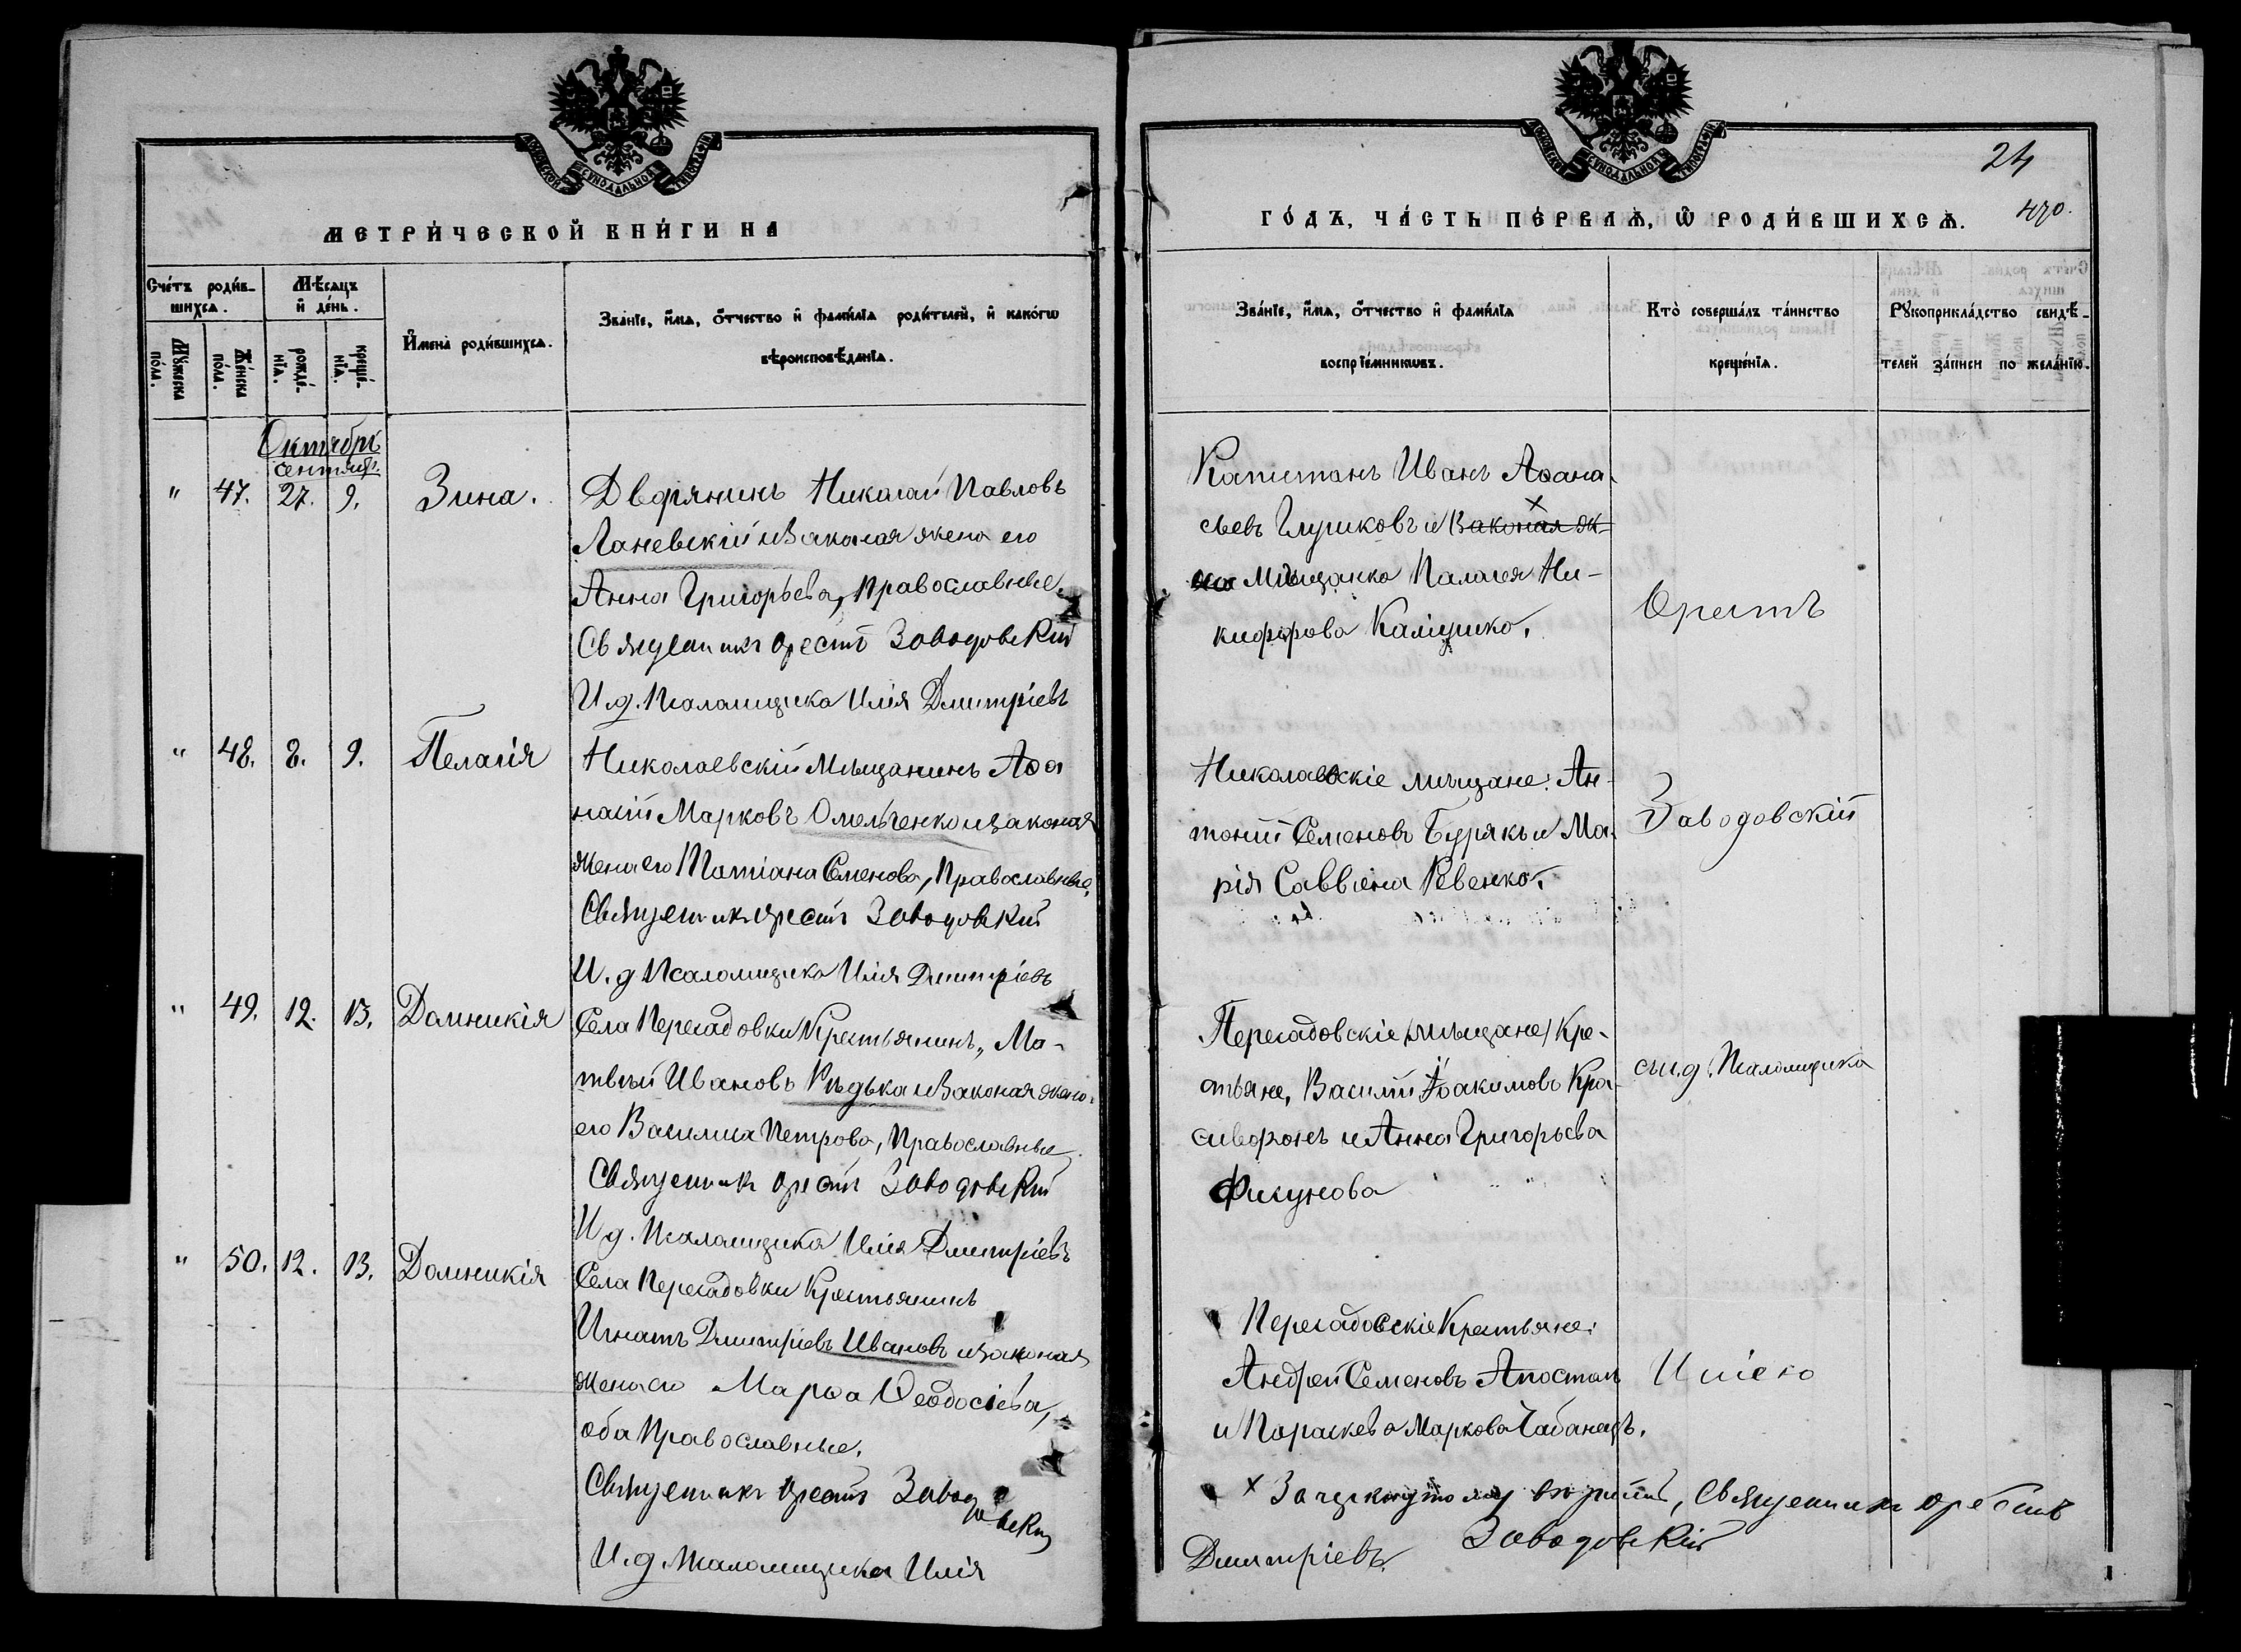 МОСКОВСКОЙ СѴНОДАЛЬНОЙ ТИПОГРАФІИ
МЕТРИ́ЧЕСКОЙ КНИ́ГИ НА
Сче́тъ роди́в-
шихсѧ.
Мѣ́сѧцъ
и҆ де́нь.
И҆мена̀ роди́вшихсѧ.
Зва́нїе, и҆́мѧ, ѻ҆́тчество и҆ фами́лїѧ роди́телей, и҆ како́гѡ
вѣроисповѣ́данїѧ.
Мꙋ́жеска
по́ла.
Же́нска
по́ла.
рожде́-
нїѧ.
креще́-
нїѧ.
Октябрь
сентябр.
" 47. 27. 9. Зина.
Дворянинъ Николай Павловъ
Ланевскій и Законая жена его
Анна Григорьева, Православные.
Священникъ Орестъ Заводовскій
И.д. Псаломщика Илія Дмитріевъ
" 48. 8. 9. Пелагія
Николаевскій мѣщанинъ Аѳа
насій Марковъ Омельченко и законая
жена его Татіана Семенова, Православные.
Священникъ Орестъ Заводовскій
И.д Псаломщика Илія Дмитріевъ
" 49. 12. 13. Домникія
Села Пересадовки Крестьянинъ, Ма-
твѣй Ивановъ Рѣдька и Законая жена
его Василиса Петрова, Православные.
Священникъ Орестъ Заводовскій
И д. Псаломщика Илія Дмитріевъ
" 50. 12. 13. Домникія
Села Пересадовки Крестьянинъ
Игнатъ Дмитріевъ Ивановъ и законая
жена его Марѳа Ѳеодосіева,
оба Православные.
Священникъ Орестъ Заводовскій
И.д. Псаломщика Илія
МОСКОВСКОЙ СѴНОДАЛЬНОЙ ТИПОГРАФІИ
24
ГО́ДЪ, ЧА́СТЬ ПЕ́РВАѦ, Ѽ РОДИ́ВШИХСѦ.
470.
Зва́нїе, и҆́мѧ, ѻ҆́тчество и҆ фами́лїѧ
воспрїе́мникѡвъ.
Кто̀ соверша́лъ та́инство
креще́нїѧ.
Рꙋкоприкла́дство свидѣ́-
телей за́писи по жела́нїю.
Капитанъ Иванъ Аѳана-
сьевъ Глушковъ и Законая же-
на мѣщанка Палагея Ни-
кифорова
Николаевскіе мѣщане: Ан-
тоній Семеновъ Бурякъ и Ма-
рія Саввина Ревенко.
Пересадовскіе (мѣщане) Кре-
стьяне, Василій Іоакимовъ Кра-
сиворонъ и Анна Григорьева
Фикунова
Пересадовскіе Крестьяне:
Андрей Семеновъ Апостолъ
и Параскева Маркова Чабанецъ.
Орестъ
Заводовскій
съ и.д. Псаломщика
Иліею
х Зачеркнутому вѣрить, Священникъ Орестъ
Заводовскій
Дмитріевъ.